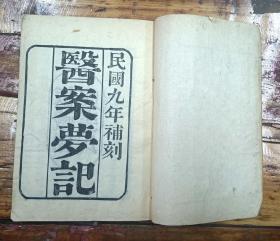 民國九年補刻
醫案夢記